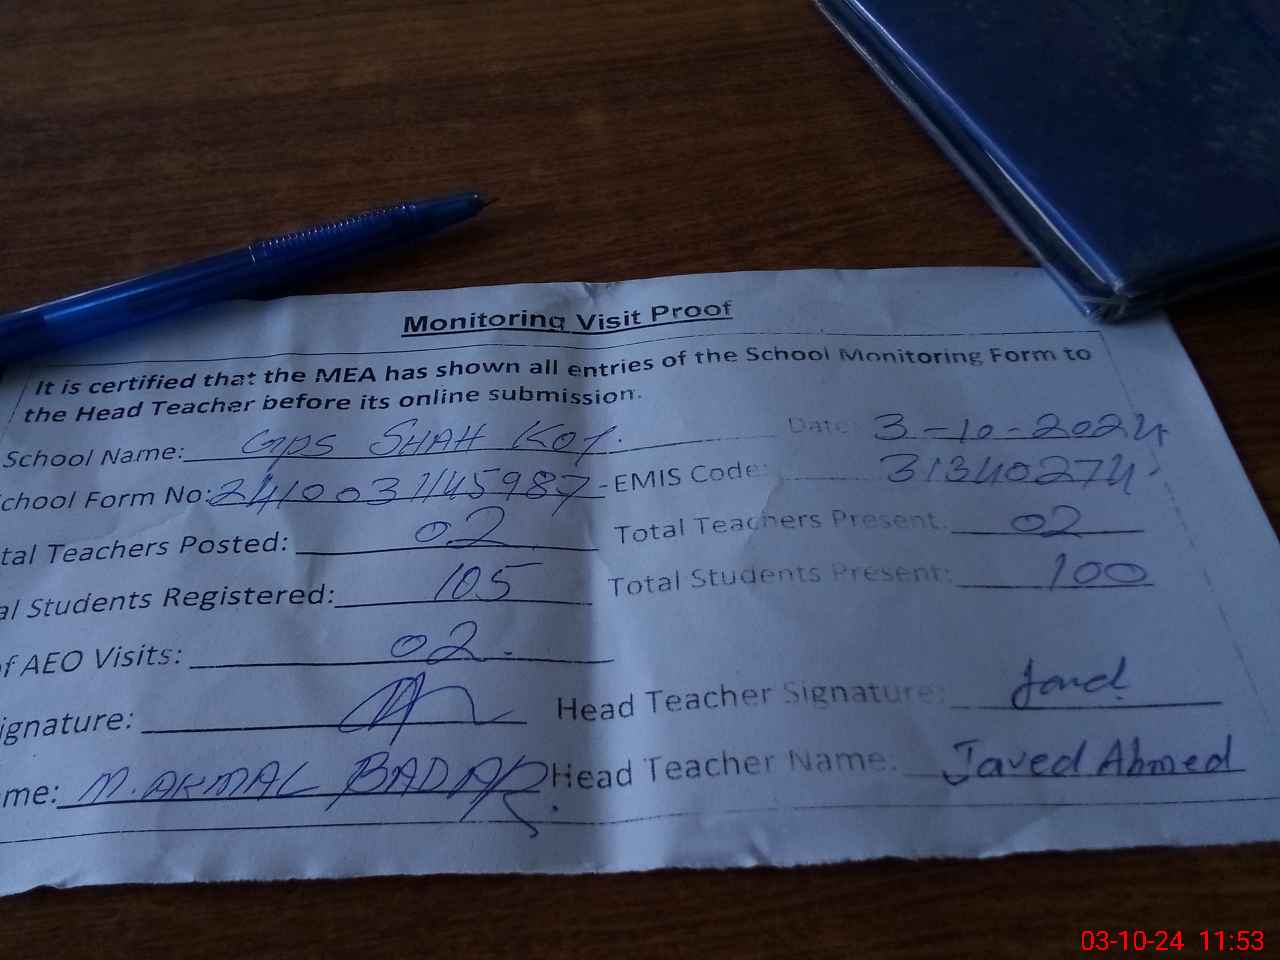 Monitoring Visit Proof
It is certified that the MEA has shown all entries of the School Monitoring Form to
the Head Teacher before its online submission.
School Name: GPS SHAH KOT. Date: 3-10-2024
chool Form No: 2410031145987 EMIS Code: 31340274
tal Teachers Posted: 02 Total Teachers Present: 02
al Students Registered: 105 Total Students Present: 100
f AEO Visits: 02.
ignature: Head Teacher Signature:
me: M. AKMAL BADAR Head Teacher Name: Javed Ahmed
03-10-24 11:53